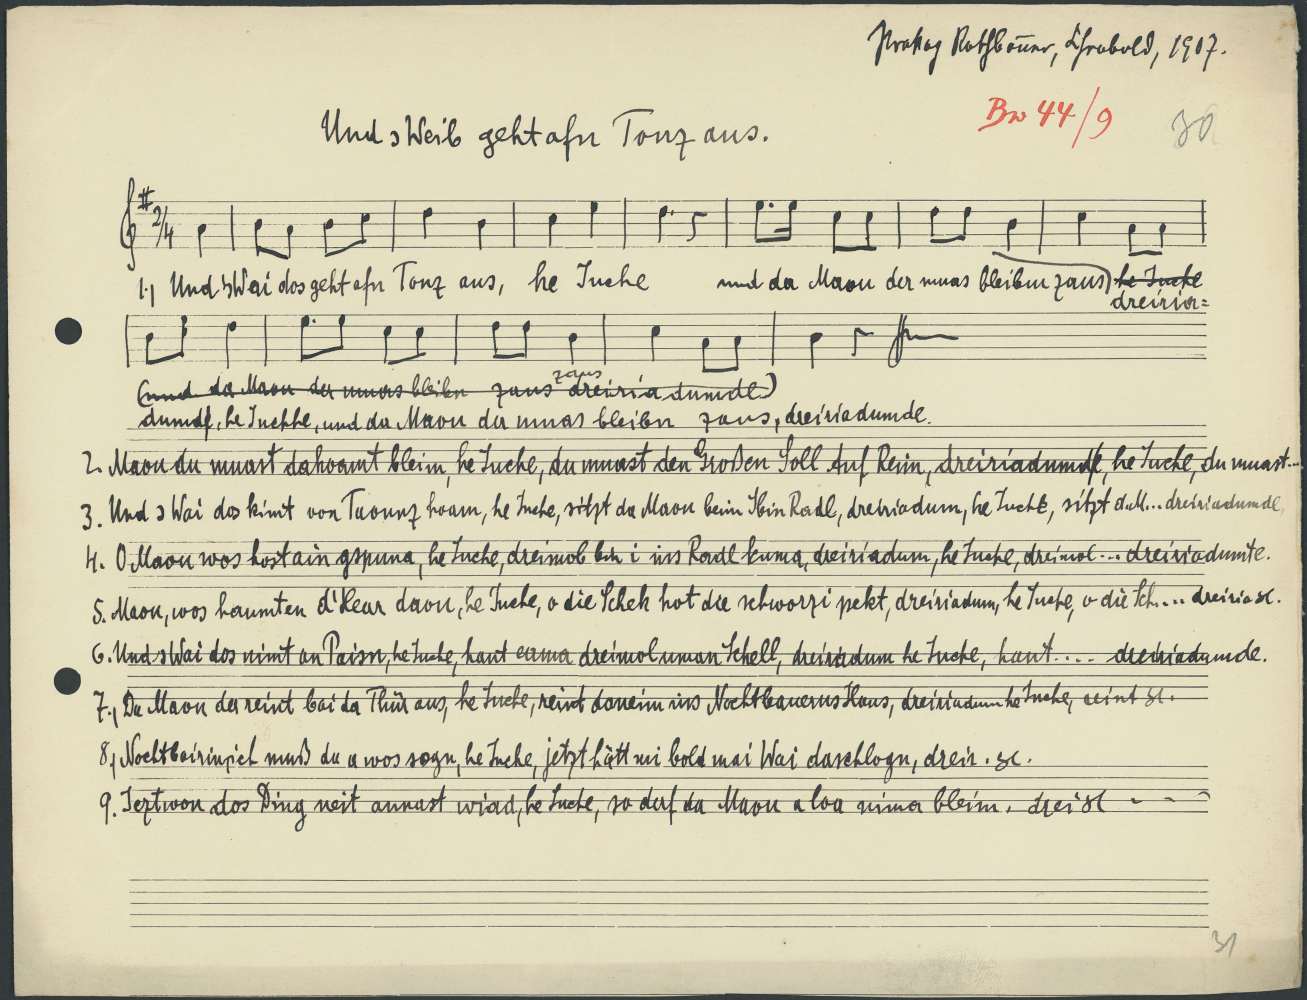 Prokop Rothbauer, Chrobold, 1907.
Bw 44/9
30
Und s Weib geht afn Tonz aus.
2/4
1.) Und s Wai dos geht afn Tonz aus, he Juche und da Maon der muas bleiben zaus) he Juche
dreiria=
(und da Maon der muas bleiben zaus dreiria dumdl)
zaus
dumdl, he Juchhe, und da Maon da muas bleiben zaus, dreiriadumde.
2. Maon du muast dahoamt bleim, he Juche, du muast den Großen Soll Auf Reim, dreiriadumdl, he Juche, du muast...
3. Und s Wai dos kimt von Taounz hoam, he Juche, sitzt da Maon beim Radl, dreiriadum, he Juche, sitzt da M... dreiriadumde,
4. O Maon wos host ain gspuna, he Juche, dreimol bin i ins Radl kuma, dreiriadum, he Juche, dreimol... dreiriadumte.
5. Maon, wos haumten d'Hear daon, he Juche, o die Schek hot die schworzi pekt, dreiriadum, he Juche, o die Sch.... dreiria sc.
6. Und s Wai dos nimt an Paisn, he Juche, haut eama dreimol uman Schell, dreiriadum he Juche, haut.... dreiriadumde.
7.) Da Maon der reint bai da Thür aus, he Juche, reint daneim ins Nochtbauerns Haus, dreiriadum he Juche, reint sc.
8.) Nochtbairin, ich muß da a wos sogn, he Juche, jetzt hätt mi bold mai Wai daschlogn, dreir. sc.
9. Jezt won dos Ding neit annast wiad, he Juche, so derf da Maon a loa nima bleim. drei sc - - -
31